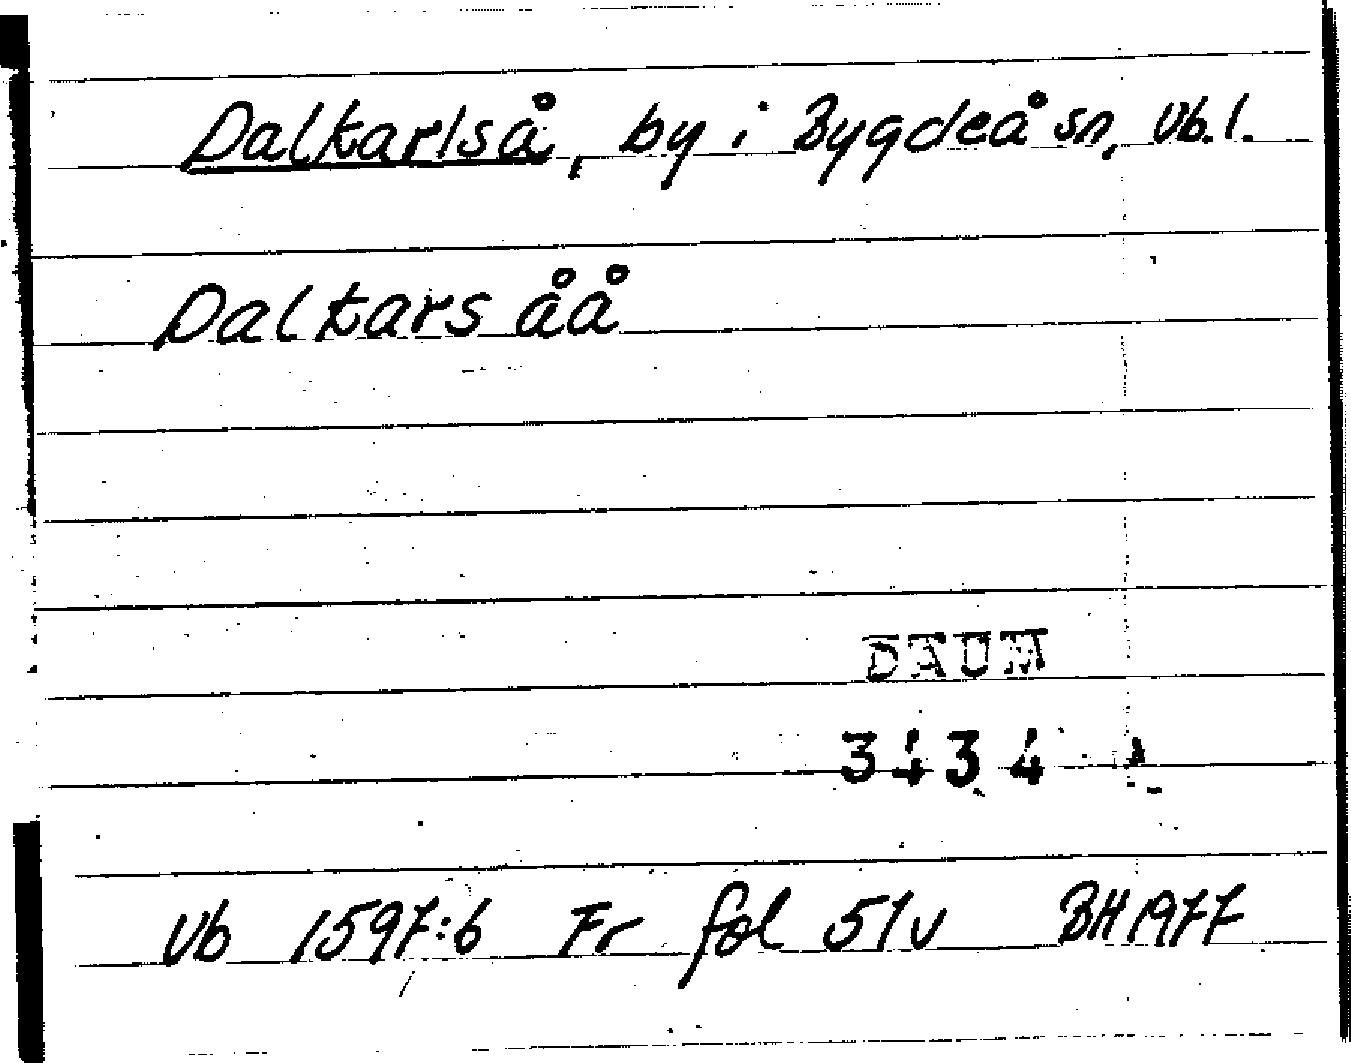 Dalkarlså, by i Bygdeå sn, Vb. l.
Dalkars åå
DAUM
3434
Vb 1597:6 Fr fol 51v BH 1977